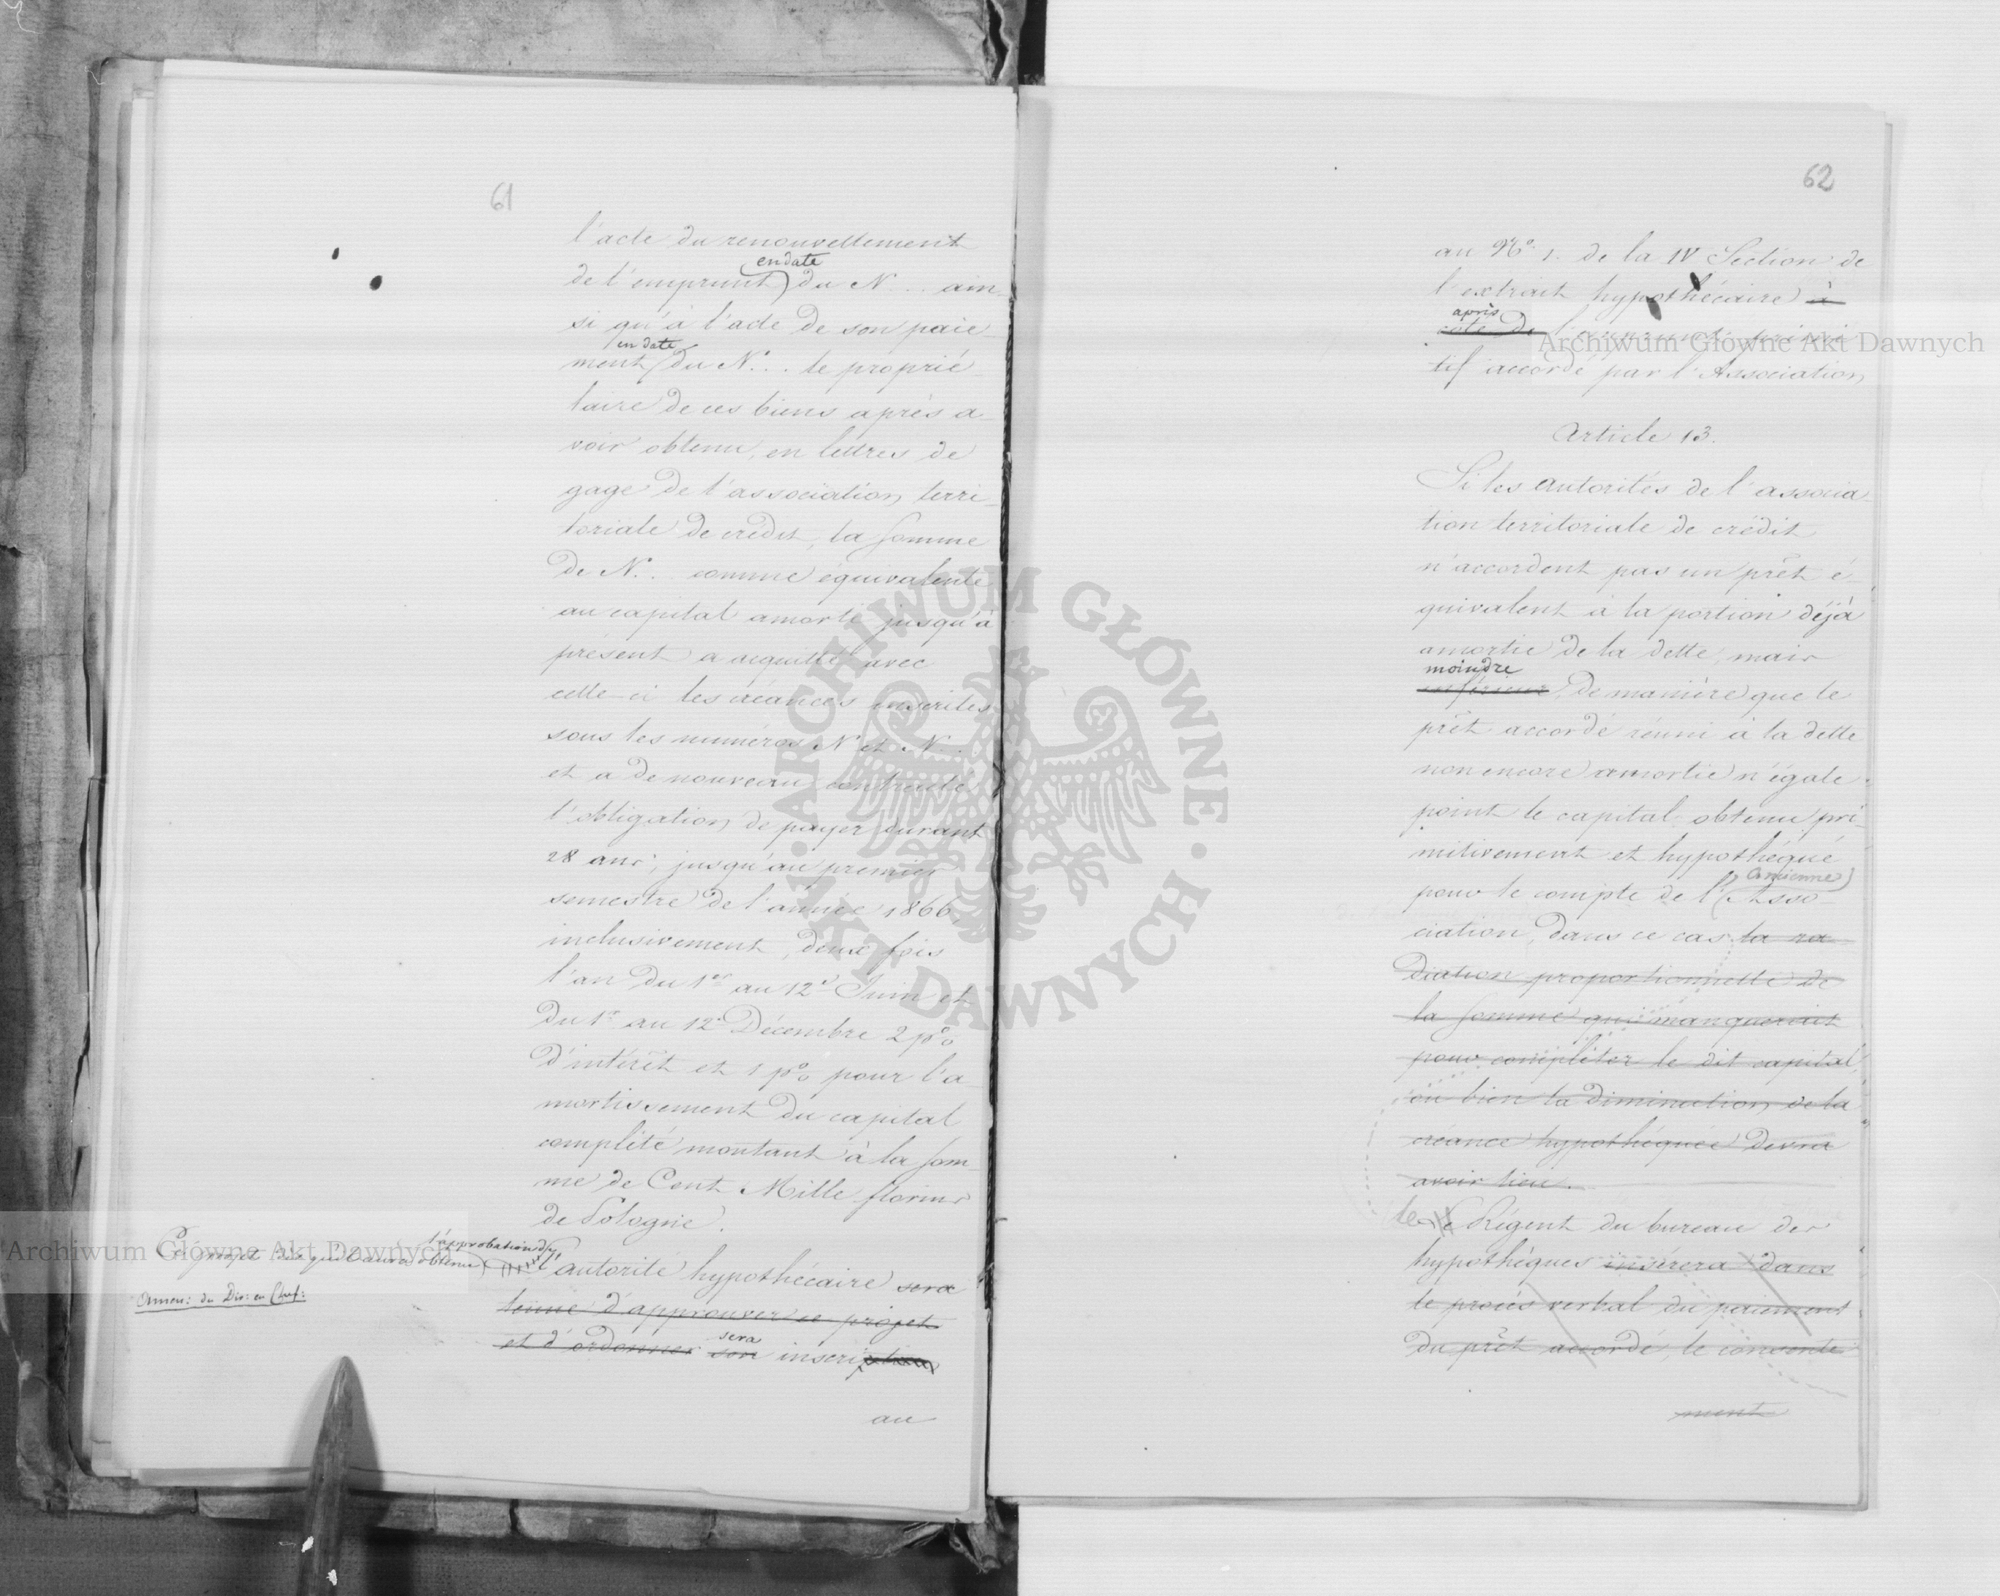 61
l'acte du renouvellement
en date
de l'emprunt du N... ain-
si qu'à l'acte de son paie-
en date
ment du N... le proprié-
taire de ces biens après a-
voir obtenu, en lettres de
gage de l'association terri-
toriale de crédit, la somme
de N.. comme équivalente
au capital amorti jusqu'à
présent a acquitté avec
celle-ci les créances inscrites
sous les numéros N et N.
et a de nouveau contracté
l'obligation de payer durant
28 ans, jusqu'au premier
semestre de l'année 1866
inclusivement, deux fois
l'an du 1er au 12 Juin et
du 1er au 12 Décembre 2 p%
d'intérêt et 1 p% pour l'a-
mortissement du capital
complété montant à la som-
me de Cent Mille florins
de Pologne.
l'approbation de
Ce projet dès qu'il aura obtenu l'autorité hypothécaire sera
Amen: du Dir: en Chef:
tenue d'approuver ce projet
sera
et d'ordonner son inscription
au
62
au No 1. de la IV Section de
l'extrait hypothécaire à
après
côté de l'emprunt primi-
tif accordé par l'Association
Article 13.
Si les autorités de l'associa-
tion territoriale de crédit
n'accordent pas un prêt é-
quivalent à la portion déjà
amortie de la dette, mais
moindre
inférieur, de manière que le
prêt accordé réuni à la dette
non encore amortie n'égale
point le capital obtenu pri-
mitivement et hypothéqué
ancienne
pour le compte de l'Asso-
ciation, dans ce cas la ra-
diation proportionnelle de
la somme qui manquerait
pour compléter le dit capital,
ou bien la diminution de la
créance hypothéquée devra
avoir lieu.
le Régent du bureau des
hypothéques insérera dans
le procès verbal du paiement
du prêt accordé, le consente-
ment
Archiwum Główne Akt Dawnych
Archiwum Główne Akt Dawnych
ARCHIWUM GŁÓWNE · AKT DAWNYCH ·